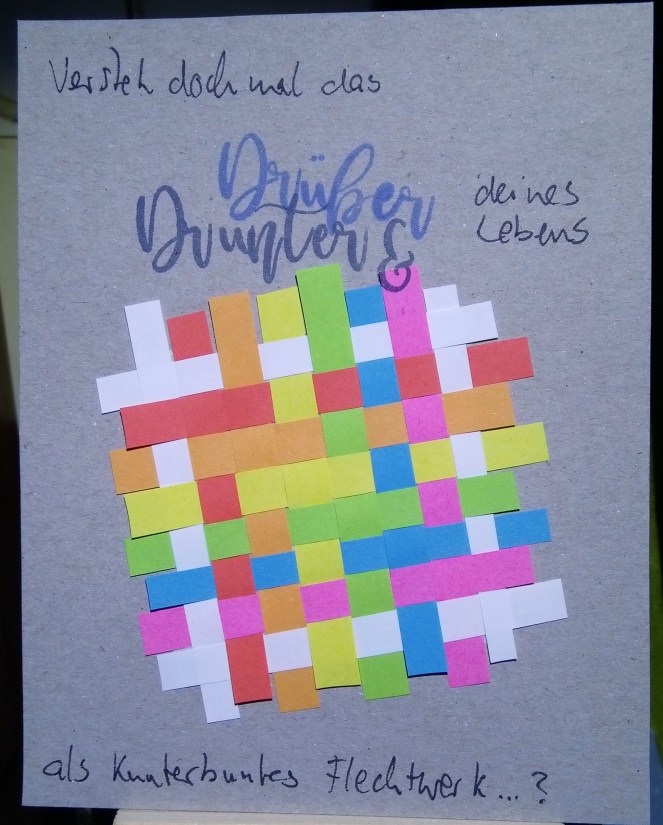 Versteh doch mal das
Drüber
Drunter &
deines
Lebens
als kunterbuntes Flechtwerk...?